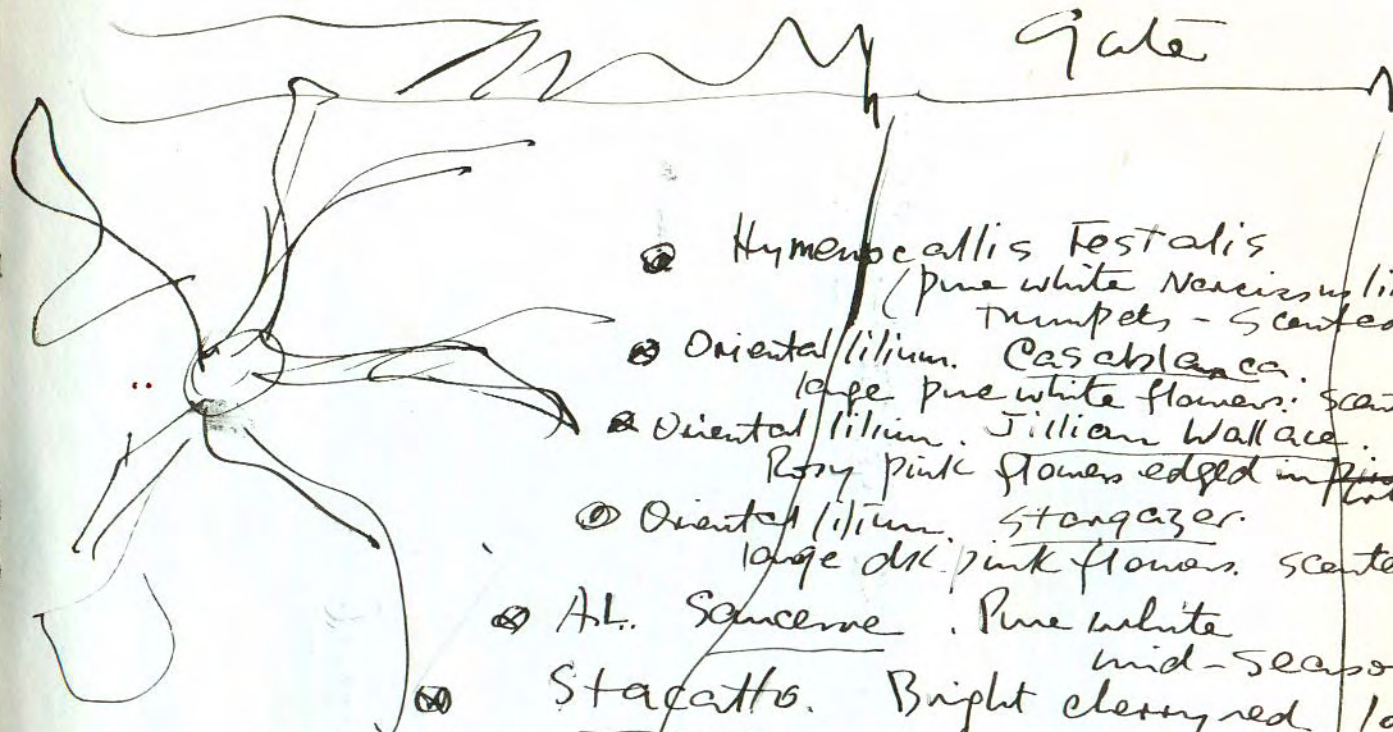 Gate
Hymenocallis Festalis
(pure white Narcissus li
trumpets - scented
Oriental lilium. Casablanca.
large pure white flowers. scen
Oriental lilium. Jillian Wallace.
Rosy pink flowers edged in
Oriental lilium. Stargazer.
large dk. pink flowers. scente
A.L. Sancerre. Pure white
mid-seaso
Stacatto. Bright cherry red